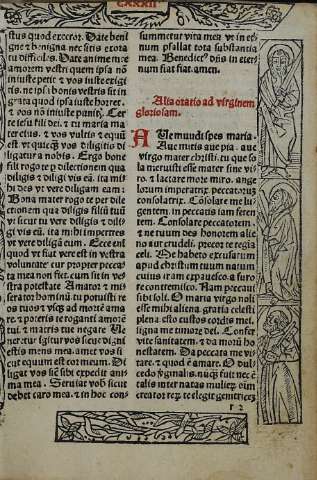 CXXXII
istus quod execror. Date beni
gne z benigna nec sitis exora
tu difficiles. Date anime mee
amorem vestri quem ipsa nō
iniuste petit z vos iuste exigi
tis. ne ipsi bonis vestris sit in
grata quod ipsa iuste horret.
z vos nō iniuste punitis. Cer
te iesu fili dei. z tu maria ma
ter eius. z vos vultis z equū
est vt quicqd vos diligitis di
ligatur a nobis. Ergo bone
fili rogo te p dilectionem qua
diligis matrem tuam. vt sicut
tu vere diligis eam:
Bona mater rogo te per dile
ctionem qua diligis filiū tuū
vt sicut tu vere illū z dili
gi vis eū. ita mihi impetres
vt vere diligā eum. Ecce enī
quod vt fiat vere est in vestra
voluntate cur propter pecca
ta mea non fiet. cum sit in ve
stra potestate Amator z mi
serator hominū tu potuisti re
os tuos z vsqz ad mortē ama
re. z poteris te roganti amorē
tui. z matris tue negare
veneretur igitur vos sicut di
gnū mens mea. amet vos si
cut equum est cor meum. Di
ligat vos sic sibi expedit ani
ma mea. Seruiat vob sicut
debet caro mea. z in hoc con
summetur vita mea vt in eter
num psallat tota substantia
mea. Benedict⁹ dn̄s in eter
num fiat fiat amen.
Alia oratio ad virginem
gloriosam.
Aue mundi spes maria.
Aue mitis aue pia. aue
virgo mater christi. tu que so
la meruisti esse mater sine vi
ro. z lactare more miro. ange
lorum imperatrix peccatorus
consolatrix. Consolare me lu
gentem. in peccatis iam feten
tem. Consolare peccatorem
z ne tuum des honorem alie
no aut crudeli. precor te regia
celi. Me habeto excusatum
apud christum tuum natum
cuius iram expauesco. z furo
re contremisco. Nam peccaui
tibi soli. O maria virgo noli
esse mihi aliena. gratia celesti
plena. esto custos cordis mei.
signa me timore dei. Confer
vite sanitatem. z da morū ho
nestatem. Da peccata me vi
tare. z quod ē amare. O dul
cedo vginalis. nūqz fuit nec ē
talis inter natas mulierū. quā
creator rerū. te elegit genitricē
r 2